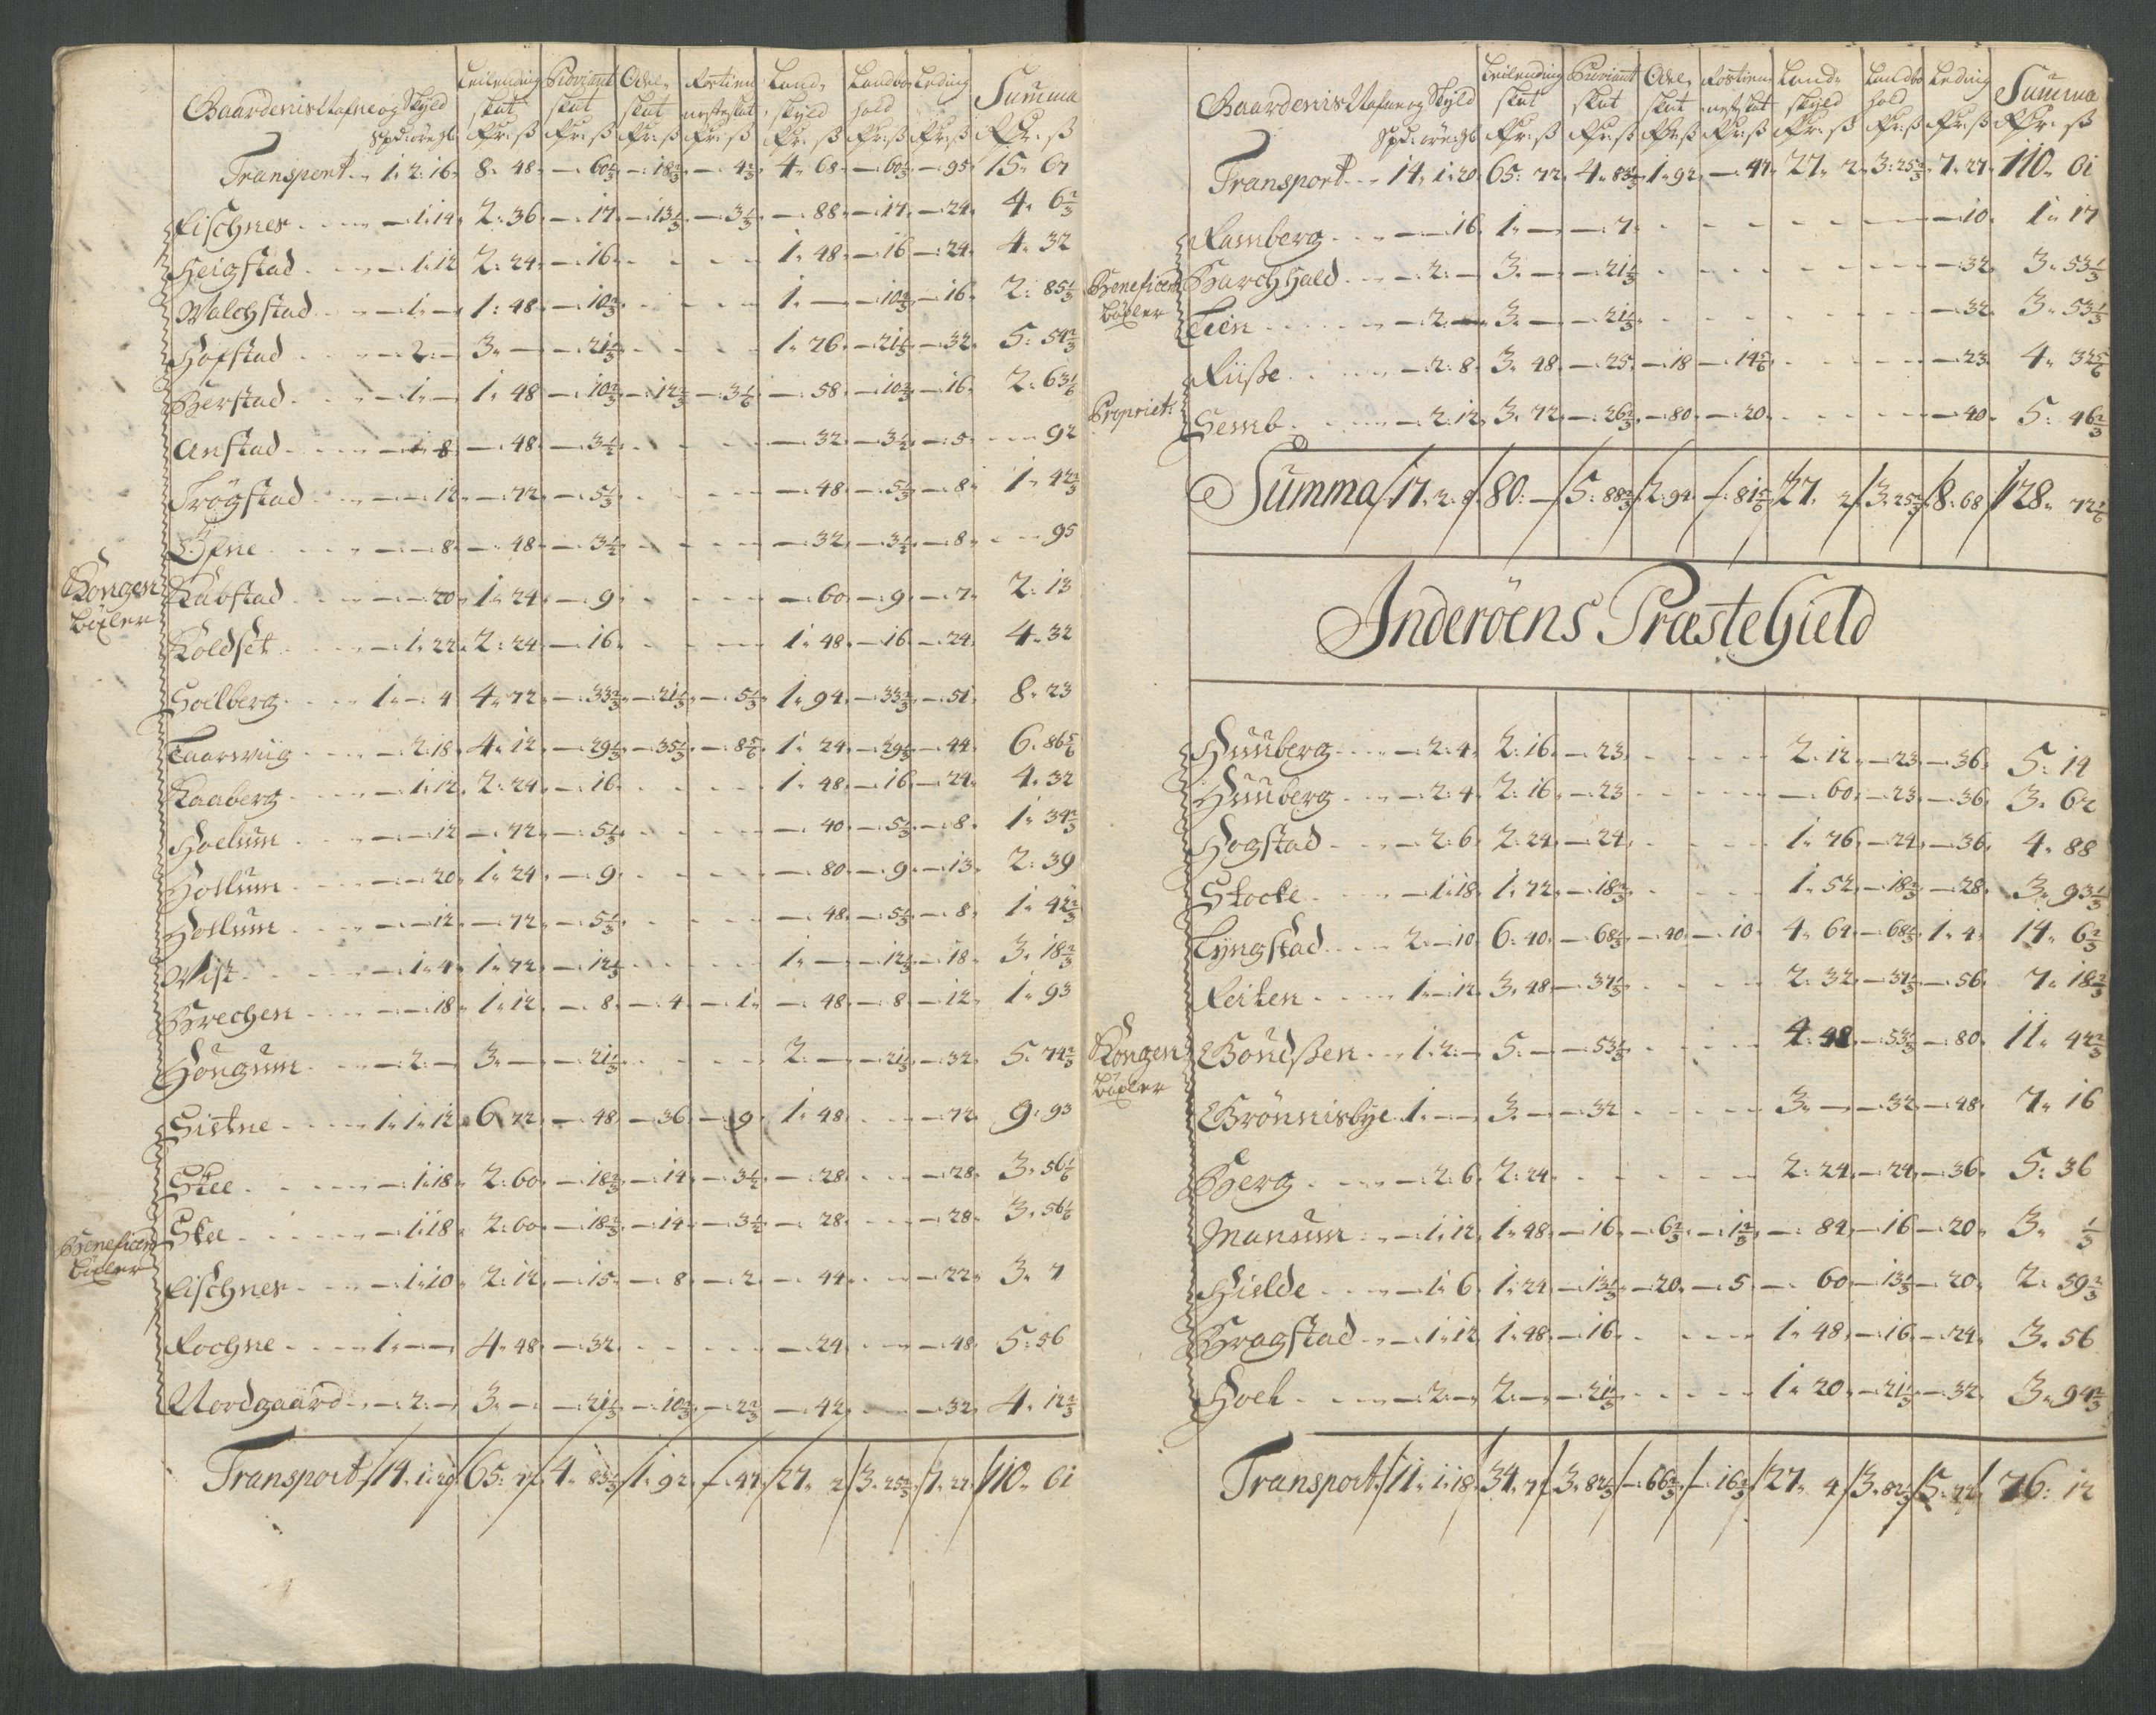 Gaardenis Nafne og Skyld Leilending skat Proviant skat Odel skat Rostienneste skat Land skyld Landbo hold Leding Summa
Spd: öre: gl: Rdr: ß Rdr: ß Rdr: ß Rdr: ß Rdr: ß Rdr: ß Rdr: ß Rdr: ß
Transport 1. 2. 16. 8. 48. — 60 2/3 — 18 2/3 — 4 2/3 4. 68. — 60 2/3 — 95. 15. 67
Fischner — 1. 14. 2. 36. — 17. — 13 1/3 — 3 1/3 — 88. — 17. — 24. 4. 6 2/3
Heigstad — 1. 12 2. 24. — 16. 1. 48. — 16 — 24. 4. 32
Walchstad — 1. — 1. 48. — 10 2/3 1. — — 10 2/3 — 16. 2. 85 1/3
Hofstad — 2. — 3. — — 21 1/3 1. 76. — 21 1/3 — 32. 5. 54 2/3
Berstad — 1. — 1. 48 — 10 2/3 — 12 2/3 — 3 1/6 — 58. — 10 2/3 — 16. 2. 63 1/6
Anstad — — 8 — 48. — 3 1/2 — 32. — 3 1/2 — 5. — 92
Trögstad — — 12. — 72. — 5 1/3 — 48. — 5 1/3 — 8. 1. 42 2/3
Öfne — — 8. — 48. — 3 1/2 — 32. — 3 1/2 — 8. — 95
Kongen büxler
Kabstad — — 20. 1. 24. — 9. — 60. — 9. — 7. 2. 13
Koldset — 1. 22. 2. 24. — 16. 1. 48. — 16. — 24. 4. 32
Soelberg 1. — 4 4. 72. — 33 2/3 — 21 1/3 — 5 1/3 1. 94. — 33 2/3 — 51. 8. 23
Taarwiig — 2. 18. 4. 12. — 29 1/3 — 35 1/3 — 8 5/6 1. 24. — 29 1/3 — 44. 6. 86 5/6
Kaaberg — 1. 12. 2. 24. — 16. 1. 48. — 16. — 24. 4. 32
Hoelum — — 12 — 72. — 5 1/3 — 40. — 5 1/3 — 8. 1. 34 2/3
Hollum — — 20. 1. 24. — 9. — 80. — 9. — 13. 2. 39
Hollum — — 12. — 72. — 5 1/3 — 48. — 5 1/3 — 8. 1. 42 2/3
Wist — 1. 4. 1. 72. — 12 1/3 1. — — 12 1/3 — 18. 3. 18 2/3
Brechen — — 18. 1. 12. — 8. — 4. — 1. — 48. — 8. — 12. 1. 93
Hougum — 2. — 3. — — 21 1/3 2. — — 21 1/3 — 32. 5. 74 2/3
Sistne 1. 1. 12 6. 72. — 48. — 36. — 9. 1. 48. — 72. 9. 93
Skee — 1. 18. 2. 60. — 18 2/3 — 14. — 3 1/2 — 28. — 28. 3. 56 1/6
Skee — 1. 18. 2. 60. — 18 2/3 — 14. — 3 1/2 — 28. — 28. 3. 56 1/6
Beneficeret büxler
Fischner — 1. 10. 2. 12. — 15. — 8. — 2. — 44. — 22. 3. 7
Rochne 1. — — 4. 48. — 32. — 24. — 48. 5. 56
Nordgaard — 2. — 3. — — 21 1/3 — 10 2/3 — 2 2/3 — 42. — 32. 4. 12 2/3
Transport 14. 1. 20 65. 72 4. 83 1/3 1. 92. — 47. 27. 2. 3. 25 2/3 7. 27. 110. 61
Gaardenis Nafne og Skyld Leilending skat Proviant skat Odel skat Rostienneste skat Land skyld Landbo hold Leding Summa
Spd: öre: gl: Rdr: ß Rdr: ß Rdr: ß Rdr: ß Rdr: ß Rdr: ß Rdr: ß Rdr: ß
Transport 14. 1. 20. 65. 72. 4. 83 1/3 1. 92. — 47. 27. 2. 3. 25 2/3 7. 27. 110. 61
Ramberg — — 16. 1. — — 7. — 10. 1. 17
Beneficeret büxler
Barchhald — 2. — 3. — — 21 1/3 — 32. 3. 53 1/3
Lien — 2. — 3. — — 21 1/3 — 32. 3. 53 1/3
Riiße — 2. 8. 3. 48. — 25. — 18 — 14 5/6 — 23. 4. 32 5/6
Propriet:
Semb — 2. 12. 3. 72. — 26 2/3 — 80. — 20. — 40. 5. 46 2/3
Summa 17. 2. 8. 80. — 5. 88 2/3 2. 94. — 81 5/6 27. 2 3. 25 2/3 8. 68 128. 72 1/6
Inderöens Præste Gield
Huuberg — 2. 4. 2. 16. — 23. 2. 12. — 23. — 36. 5. 14
Huuberg — 2. 4. 2. 16. — 23 — 60. — 23. — 36. 3. 62
Hogstad — 2. 6. 2. 24. — 24. 1. 76. — 24. — 36. 4. 88
Stocke — 1. 18. 1. 72. — 18 2/3 1. 52. — 18 2/3 — 28. 3. 93 1/3
Lyngstad 2. — 10. 6. 40. — 68 1/3 — 40. — 10 4. 64. — 68 1/3 1. 4. 14. 6 2/3
Reiten 1. — 12. 3. 48. — 37 1/3 2. 32. — 37 1/3 — 56. 7. 18 2/3
Kongen büxler
Boudßen 1. 2. — 5. — — 53 1/3 4. 48. — 53 1/3 — 80. 11. 42 2/3
Brönnisbye 1. — — 3. — — 32 3. — — 32. — 48. 7. 16
Berg — 2. 6. 2. 24. 2. 24. — 24. — 36. 5. 36
Manum — 1. 12. 1. 48. — 16. — 6 2/3 — 1 2/3 — 84. — 16. — 20. 3. 1/3
Hielde — 1. 6. 1. 24. — 13 1/3 — 20. — 5. — 60. — 13 1/3 — 20. 2. 59 2/3
Bragstad — 1. 12 1. 48. — 16. 1. 48. — 16. — 24. 3. 56
Hoel — 2. — 2. — — 21 1/3 1. 20. — 21 1/3 — 32. 3. 94 2/3
Transport 11. 1. 18. 34. 72 3. 82 1/3 — 66 2/3 — 16 2/3 27. 4 3. 82 1/3 5. 72 76. 12